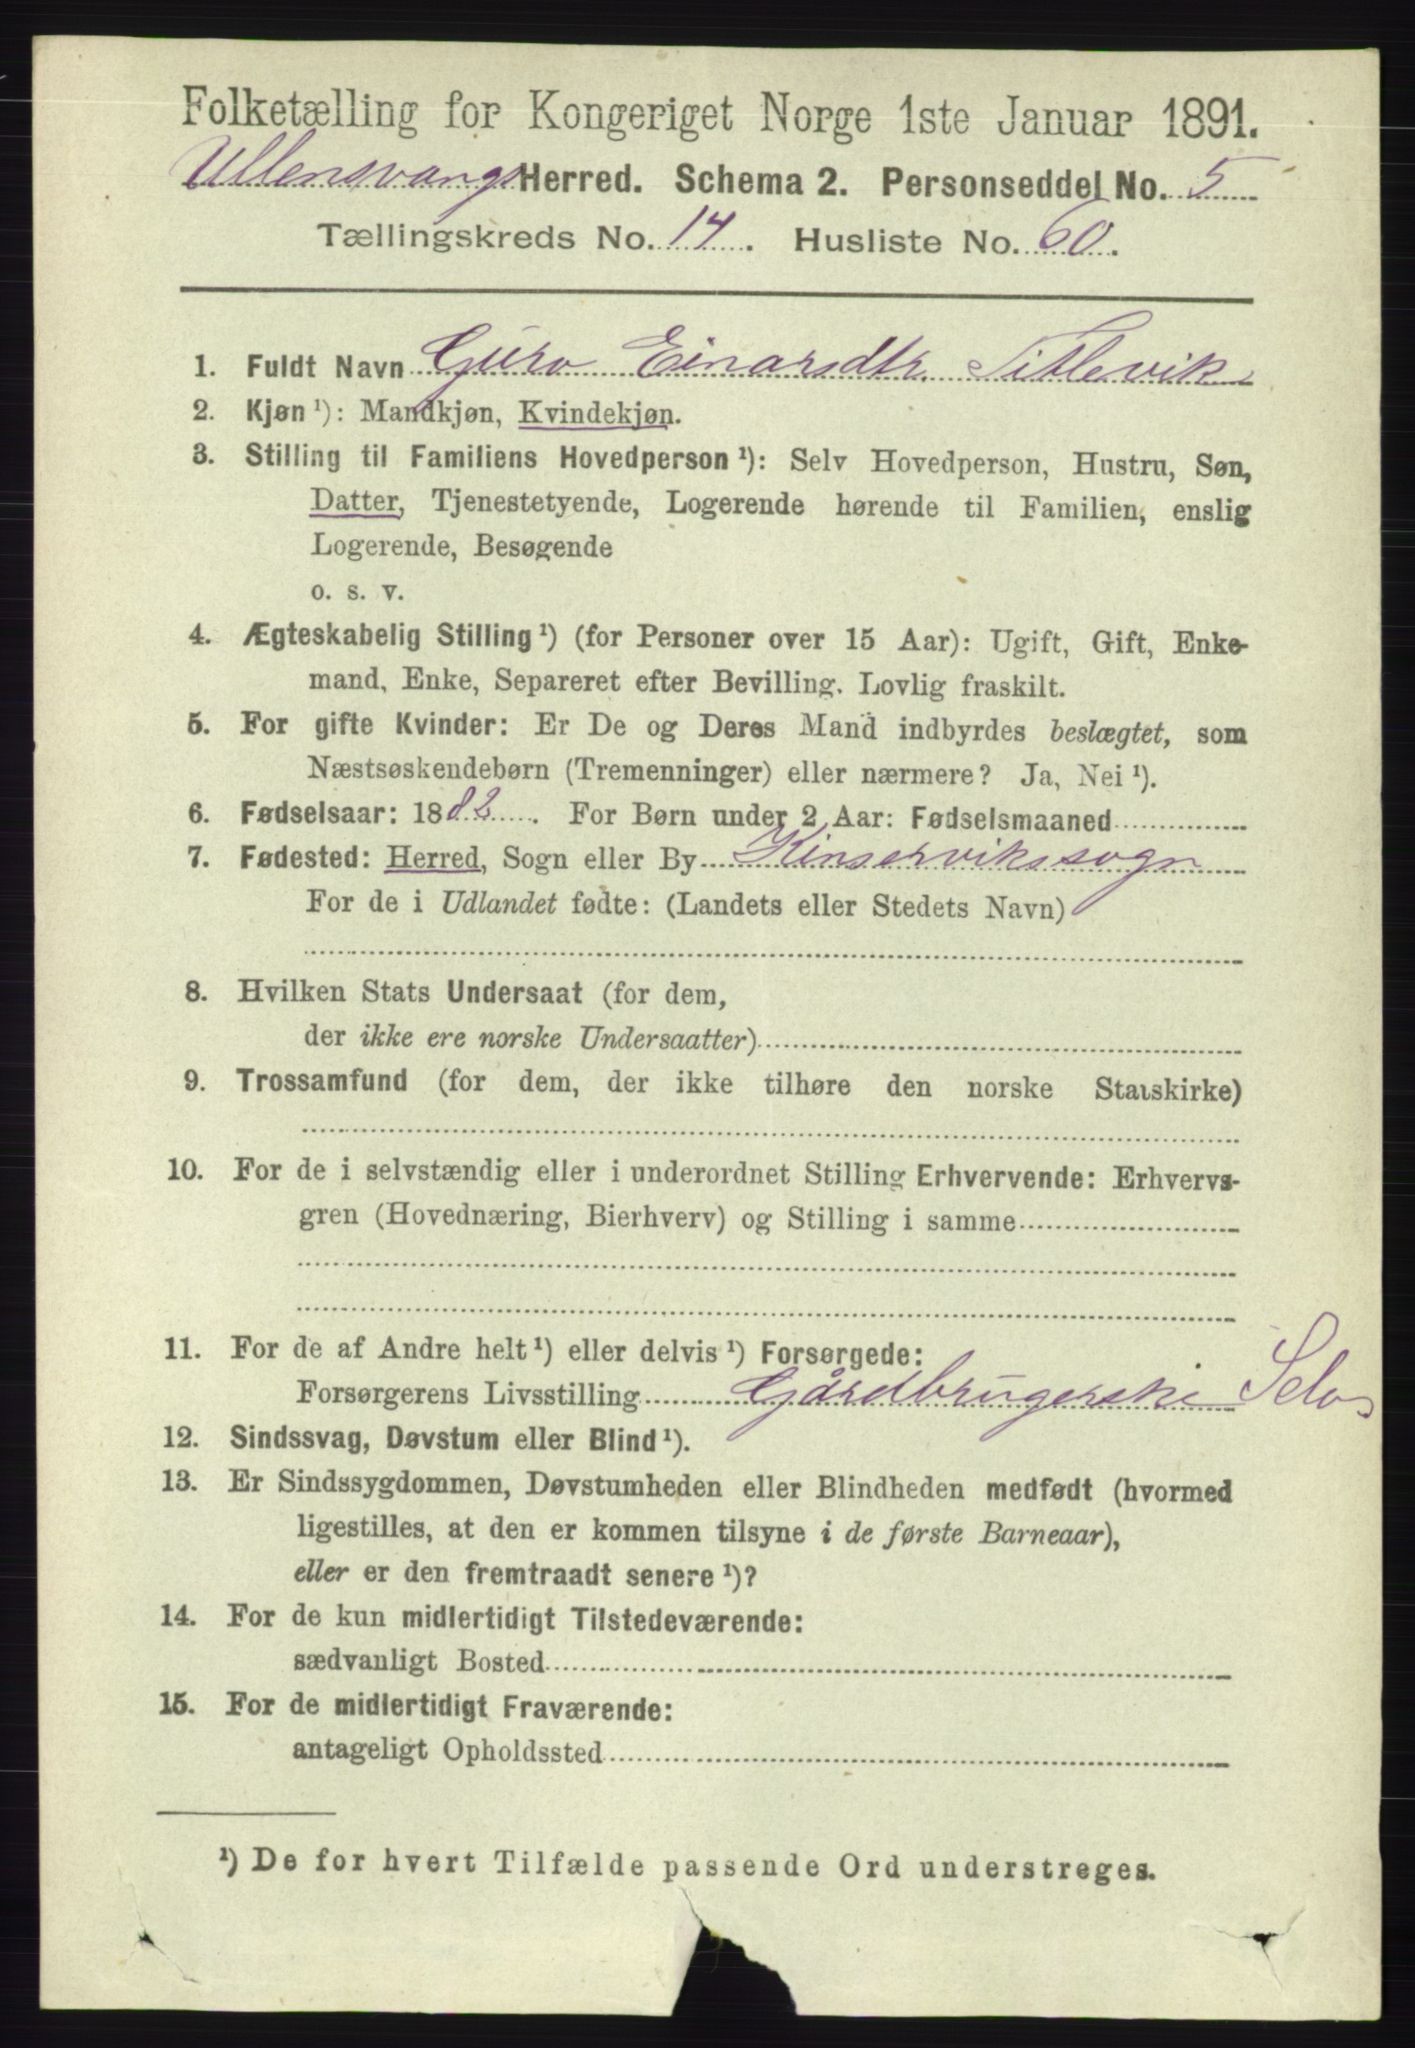 Folketælling for Kongeriget Norge 1ste Januar 1891.
Ullensvangs Herred. Schema 2. Personseddel No. 5
Tællingskreds No. 14. Husliste No. 60.
1. Fuldt Navn Guro Einarsdtr. Sitlevik
2. Kjøn ¹): Mandkjøn, Kvindekjøn.
3. Stilling til Familiens Hovedperson ¹): Selv Hovedperson, Hustru, Søn,
Datter, Tjenestetyende, Logerende hørende til Familien, enslig
Logerende, Besøgende
o. s. v.
4. Ægteskabelig Stilling ¹) (for Personer over 15 Aar): Ugift, Gift, Enke-
mand, Enke, Separeret efter Bevilling. Lovlig fraskilt.
5. For gifte Kvinder: Er De og Deres Mand indbyrdes beslægtet, som
Næstsøskendebørn (Tremenninger) eller nærmere? Ja, Nei ¹).
6. Fødselsaar: 1882. For Børn under 2 Aar: Fødselsmaaned
7. Fødested: Herred, Sogn eller By Kinservikssogn
For de i Udlandet fødte: (Landets eller Stedets Navn)
8. Hvilken Stats Undersaat (for dem,
der ikke ere norske Undersaatter)
9. Trossamfund (for dem, der ikke tilhøre den norske Statskirke)
10. For de i selvstændig eller i underordnet Stilling Erhvervende: Erhvervs-
gren (Hovednæring, Bierhverv) og Stilling i samme
11. For de af Andre helt ¹) eller delvis ¹) Forsørgede:
Forsørgerens Livsstilling Gårdbrugerske
12. Sindssvag, Døvstum eller Blind ¹).
13. Er Sindssygdommen, Døvstumheden eller Blindheden medfødt (hvormed
ligestilles, at den er kommen tilsyne i de første Barneaar),
eller er den fremtraadt senere ¹)?
14. For de kun midlertidigt Tilstedeværende:
sædvanligt Bosted
15. For de midlertidigt Fraværende:
antageligt Opholdssted
¹) De for hvert Tilfælde passende Ord understreges.